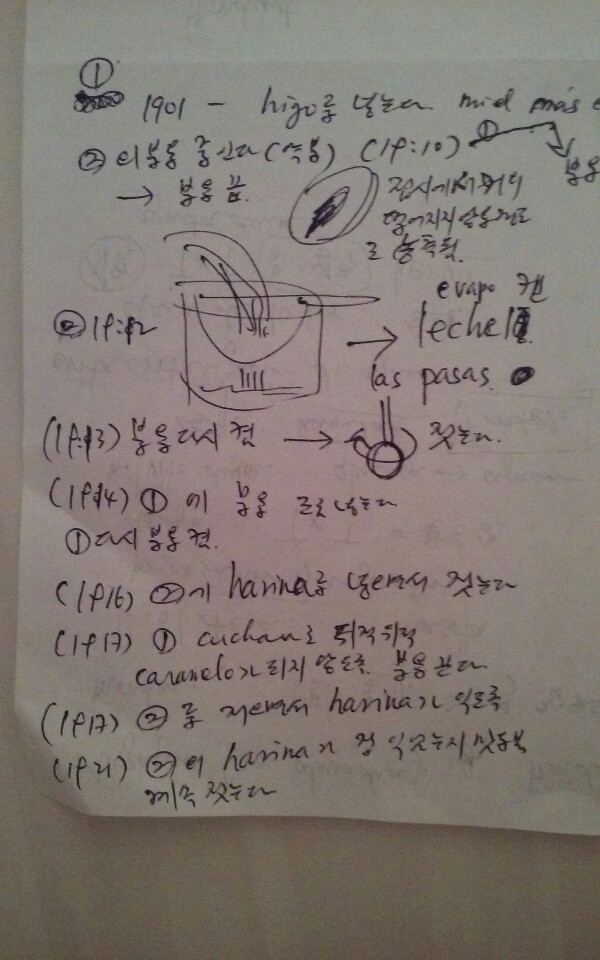 ①
1901 - higo를 넣는다 miel más
② 의 불을 줄인다 (약불) (19:10) ①
→ 불을 끔. 불을
접시에서 거의
떨어지지 않을 정도
로 농축됨.
② 19:12
evapo 캔
→ leche
las pasas.
(19:13) 불을 다시 켬 → 젓는다.
(19:14) ① 에 불을 넣는다
① 다시 불을 켬.
(1916) ②에 harina를 넣으면서 젓는다
(1917) ① cuchara로 뒤적뒤적
caramelo가 되지 않도록 불을 끈다
(1917) ② 를 저으면서 harina가 익도록
(1921) ②의 harina가 잘 익었는지 맛을
계속 젓는다